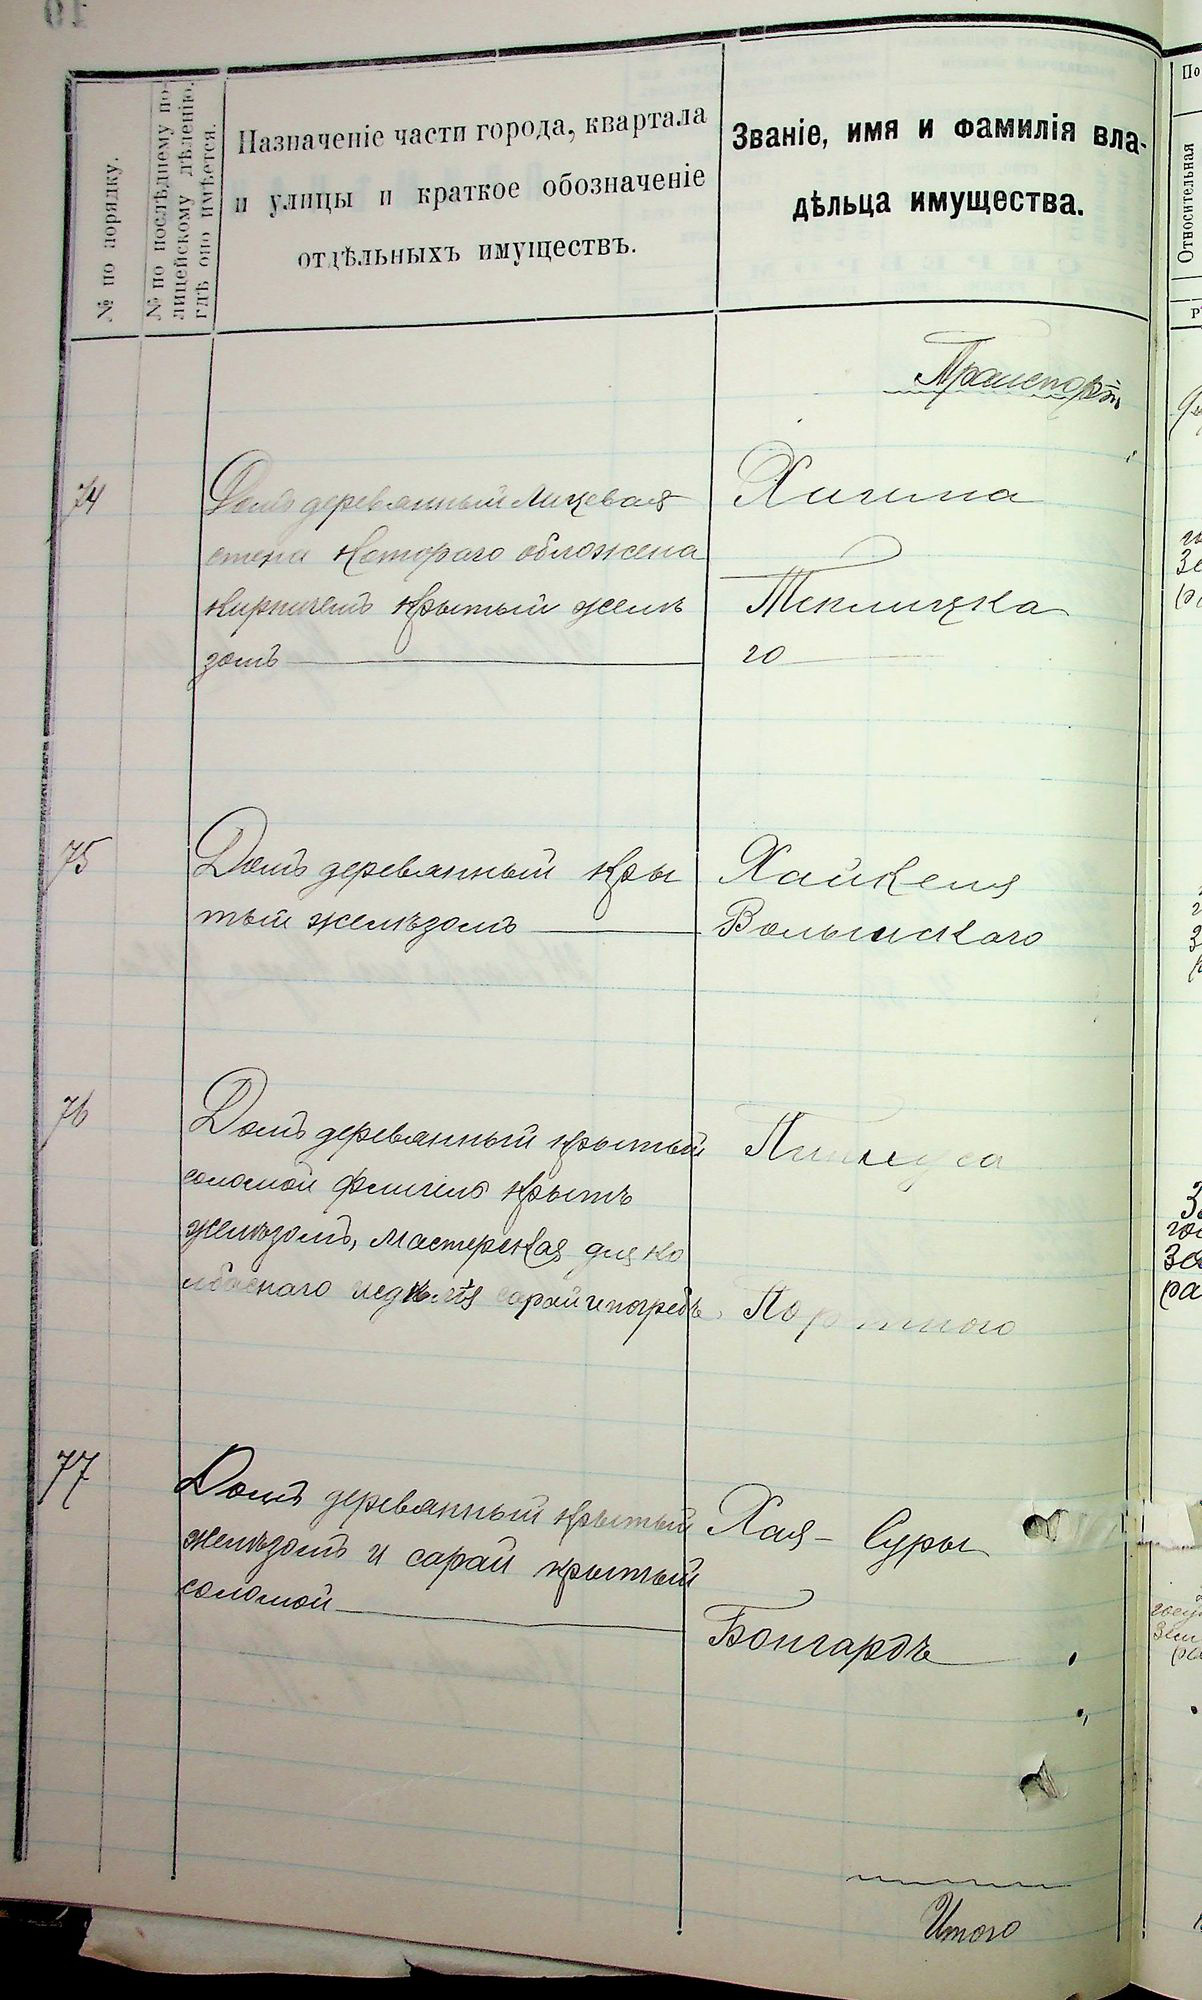 № по порядку.
№ по послѣднему по-
лицейскому дѣленію,
гдѣ оно имѣется.
Назначеніе части города, квартала
и улицы и краткое обозначеніе
отдѣльныхъ имуществъ.
Званіе, имя и фамилія вла-
дѣльца имущества.
Относительная
Транспортъ
74
Домъ деревянный лицевая
стена котораго обложена
кирпичемъ крытый желѣ
зомъ
Хигина
Теплицка
го
75
Домъ деревянный кры
тый желѣзомъ
Хайкеля
Волынскаго
76
Домъ деревянный крытый
соломой флигель крытъ
желѣзомъ, мастерская для ко
лбаснаго издѣлія сарай и погребъ.
Пинкуса
Портного
77
Домъ деревянный крытый
желѣзомъ и сарай крытый
соломой
Хая-Суры
Бонгардъ
Итого